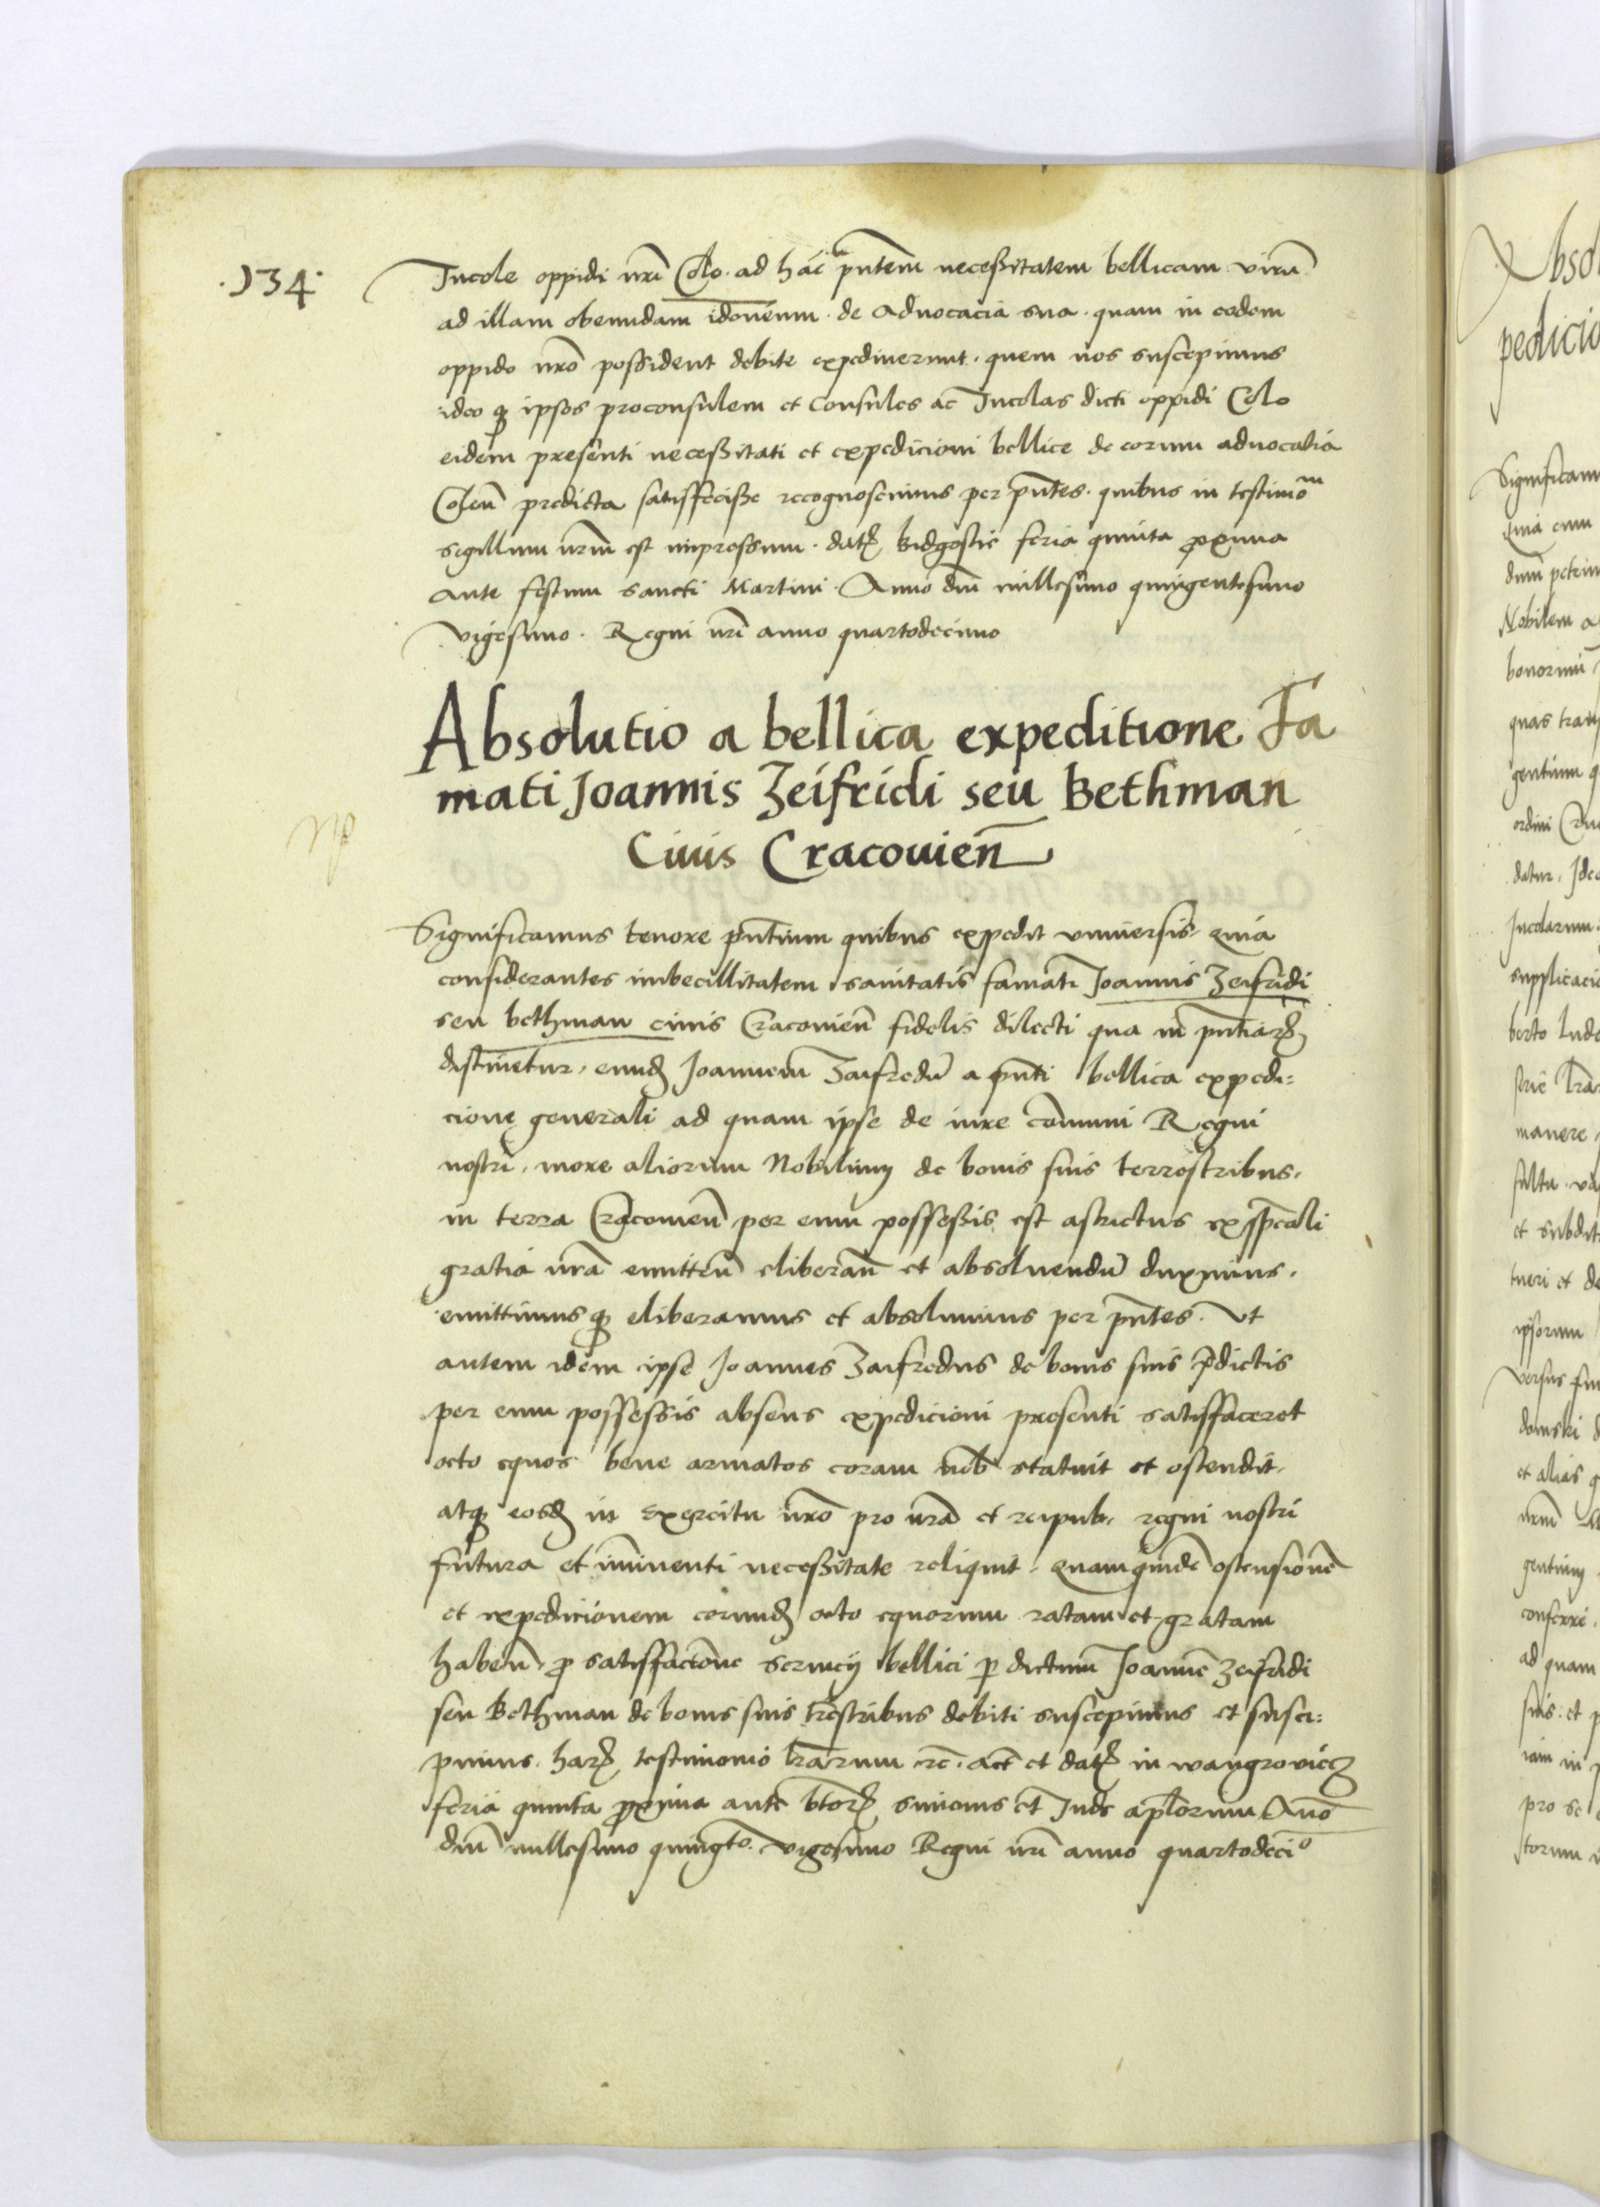 .134.
Incole oppidi nri Colo. ad hac pntem necessitatem bellicam viru
ad illam obeundam idoneum. de advocacia sua. quam in eodem
oppido nro possident debite expediverunt. quem nos suscepimus
ideo qz ipsos proconsulem et Consules ac Incolas dicti oppidi Colo
eidem presenti necessitati et expedicioni bellice de eorum advocatia
Colen predicta satisfecisse recognoscimus per pntes. quibus in testimom
sigillum nrm est impressum. dat Bidgostie feria quinta proxima
ante festum sancti Martini. Anno dni millesimo quingentesimo
vigesimo. Regni nri anno quartodecimo
Absolutio a bellica expeditione Fa
mati Joannis Zeifridi seu Bethman
Civis Cracovien
Significamus tenore pntium quibus expedit universis. quia
considerantes imbecillitatem sanitatis famati Joannis Zeifridi
seu bethman civis Cracovien fidelis dilecti qua in pntiarz
distinetur. eundz Joannem Zaifredu a pnti bellica expedi=
cione generali ad quam ipse de iure comuni Regni
nostri. more aliorum Nobilium de bonis suis terrestribus.
in terra Cracovien per eum possessis est astrictus ex spcali
gratia nra emitten eliberan et absolvendu duximus.
emittimus qz eliberamus et absolvimus per pntes. Ut
autem idem ipse Joannes Zaifredus de bonis suis pdictis
per eum possessis absens expedicioni presenti satisfaceret
octo equos bene armatos coram nob statuit et ostendit.
atqz eosdz in exercitu nro pro nra et reipub. regni nostri
futura et iminenti necessitate reliquit. quamquide ostensione
et expedicionem eorundz octo equorum ratam et gratam
haben. pro satisfactione servicij bellici p dictum Joanne Zeifridi
seu Bethman de bonis suis trestribus debiti suscepimus et susci=
pimus. harz testimonio lrarum rc. act et dat in wangroviecz
feria quinta proxima ante btorz simonis et Jude aplorum Anno
dni millesimo quingto. vigesimo Regni nri anno quartodecio